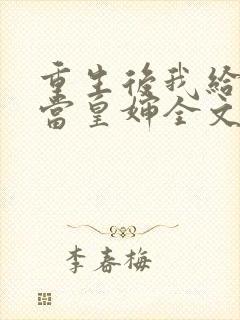 重生後我給
當皇婦全文
李春梅